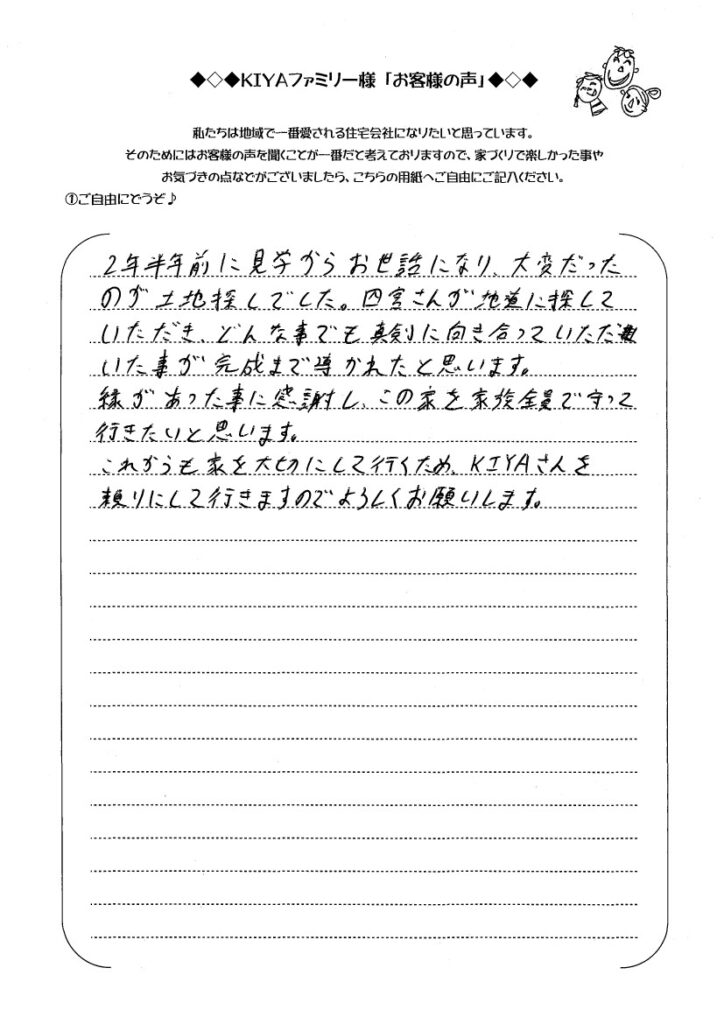 ◆◇◆KIYAファミリー様「お客様の声」◆◇◆
私たちは地域で一番愛される住宅会社になりたいと思っています。
そのためにはお客様の声を聞くことが一番だと考えておりますので、家づくりで楽しかった事や
お気づきの点などがございましたら、こちらの用紙へご自由にご記入ください。
①ご自由にどうぞ♪
2年半年前に見学からお世話になり、大変だった
のが土地探しでした。四宮さんが地道に探して
いただき、どんな事でも真剣に向き合っていただ
いた事が完成まで導かれたと思います。
縁があった事に感謝し、この家を家族全員で守って
行きたいと思います。
これからも家を大切にして行くため、KIYAさんを
頼りにして行きますのでよろしくお願いします。